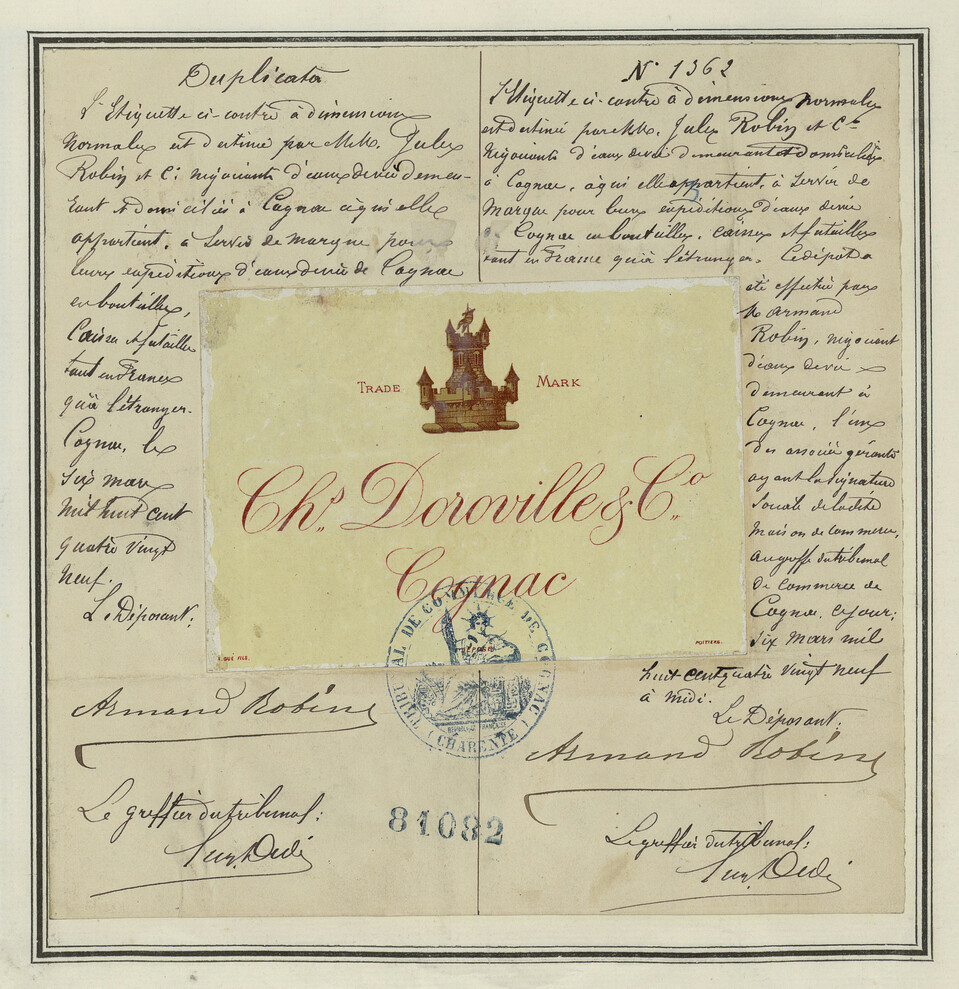 Duplicata
L'Etiquette ci-contre à dimensions
Normales est destinée par MM. Jules
Robin et Cie négociants d'eaux de vie demeu-
rant et domiciliés à Cognac à qui elle
appartient, à servir de marque pour
leurs expéditions d'eaux de vie de Cognac
en bouteilles,
Caisses et futailles
tant en France
qu'à l'étranger.
Cognac, le
Six mars
Mil huit cent
quatre vingt
Neuf.
Le Déposant:
Armand Robin
Le greffier du tribunal:
N° 1362
L'Etiquette ci-contre à dimensions normales
est destinée par MM. Jules Robin et Cie
Négociants d'eaux de vie demeurant et domiciliés
à Cognac, à qui elle appartient, à servir de
Marque pour leurs expéditions d'eaux de vie
de Cognac en bouteilles, caisses et futailles
tant en France qu'à l'étranger. Ce dépôt a
été effectué par
M. Armand
Robin, négociant
d'eaux de vie
demeurant à
Cognac, l'un
des associés gérants
ayant la signature
sociale de la dite
Maison de commerce,
au greffe du tribunal
de commerce de
Cognac, ce jour:
Six Mars mil
huit cent quatre vingt neuf
à midi.
Le Déposant:
Armand Robin
Le greffier du tribunal:
TRADE MARK
Chs. Doroville & Co.
Cognac
DÉPOSÉ
POITIERS.
TRIBUNAL DE COMMERCE DE COGNAC
RÉPUBLIQUE FRANÇAISE
(CHARENTE)
81092